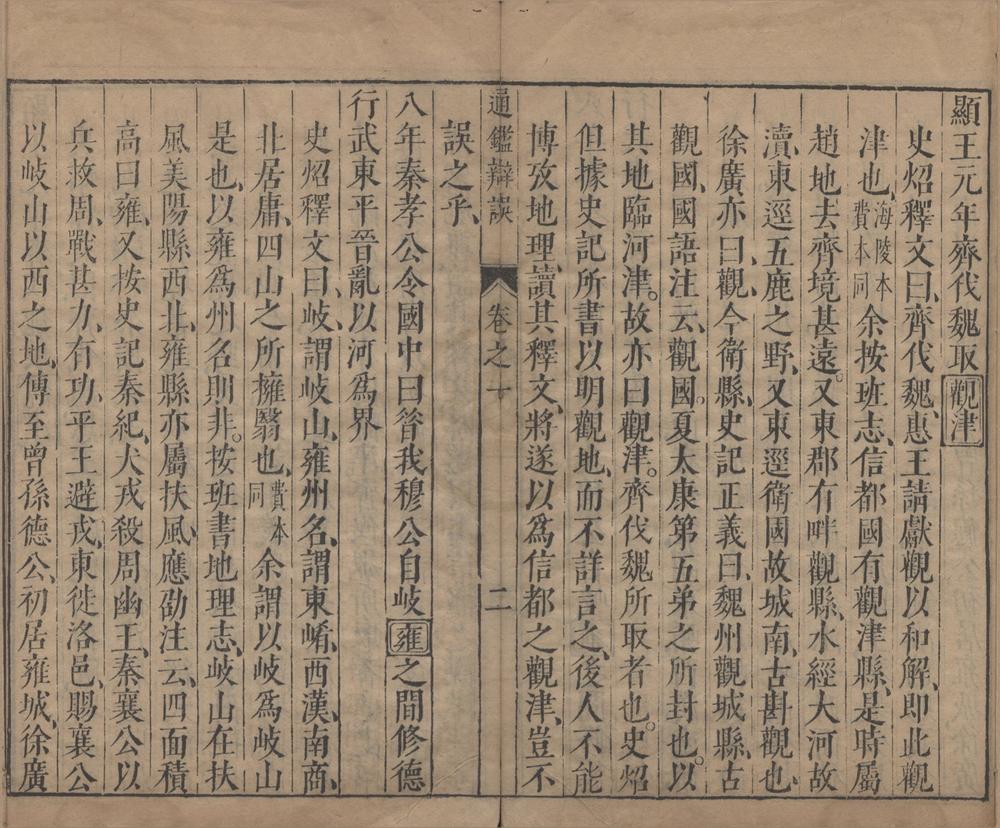 顯王元年齊伐魏取觀津
史炤釋文曰、齊伐魏、惠王請獻觀以和解、即此觀
津也、海陵本費本同余按班志、信都國有觀津縣、是時屬
趙地去齊境甚遠。又東郡有畔觀縣、水經大河故
瀆、東逕五鹿之野、又東逕衛國故城南、古斟觀也、
徐廣亦曰、觀、今衛縣、史記正義曰、魏州觀城縣、古
觀國、國語注云、觀國。夏太康第五弟之所封也。以
其地臨河津。故亦曰觀津。齊伐魏所取者也。史炤
但據史記所書以明觀地、而不詳言之、後人不能
博攷地理、讀其釋文、將遂以為信都之觀津、豈不
通鑑辯誤 卷之十 二
誤之乎、
八年秦孝公令國中曰昔我穆公自岐雍之間修德
行武東平晉亂以河為界
史炤釋文曰、岐、謂岐山、雍州名、謂東崤、西漢、南商、
北居庸、四山之所擁翳也、費本同余謂以岐為岐山
是也、以雍為州名則非。按班書地理志、岐山在扶
風美陽縣西北、雍縣亦屬扶風、應劭注云、四面積
高曰雍、又按史記秦紀、犬戎殺周幽王、秦襄公以
兵救周、戰甚力、有功、平王避戎、東徙洛邑、賜襄公
以岐山以西之地、傳至曾孫德公、初居雍城、徐廣